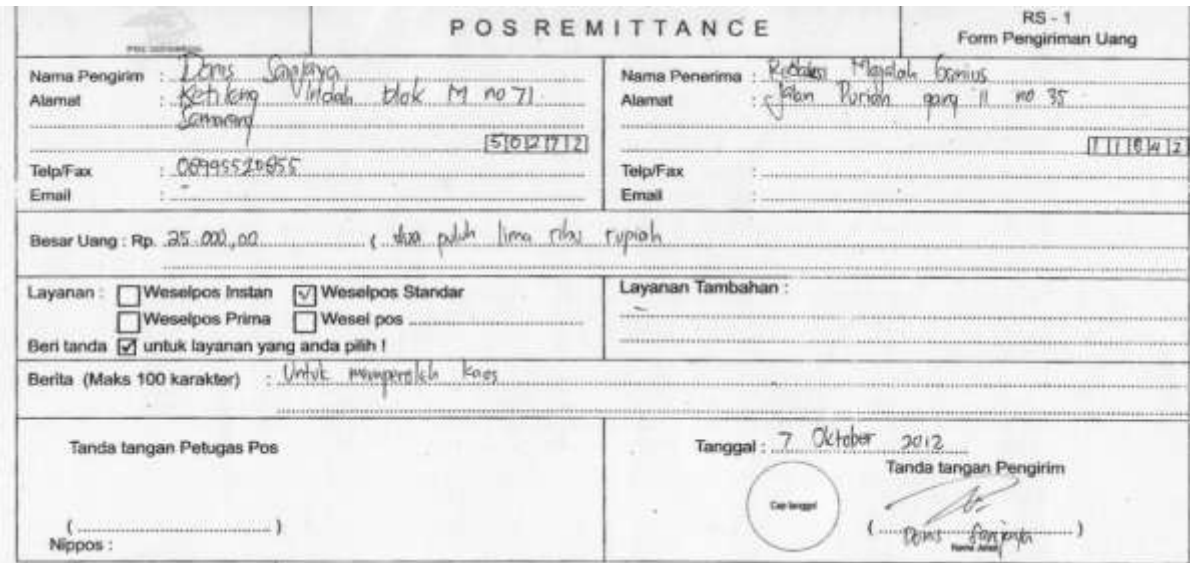 POS INDONESIA
POS REMITTANCE
RS - 1
Form Pengiriman Uang
Nama Pengirim : Denis Sanjaya
Alamat : Ketileng Indah blok M no 71
Semarang
50272
Telp/Fax : 08995520855
Email : -
Nama Penerima : Redaksi Majalah Genius
Alamat : Jalan gang II no 35
11842
Telp/Fax :
Email :
Besar Uang : Rp. 25.000,00 ( dua puluh lima ribu rupiah
Layanan : Weselpos Instan ☑ Weselpos Standar
Weselpos Prima Wesel pos
Beri tanda ☑ untuk layanan yang anda pilih !
Layanan Tambahan :
-
Berita (Maks 100 karakter) : Untuk memperoleh kaos
Tanda tangan Petugas Pos
( )
Nippos :
Tanggal : 7 Oktober 2012
Tanda tangan Pengirim
Cap tanggal
( Denis Sanjaya )
Nama Jelas